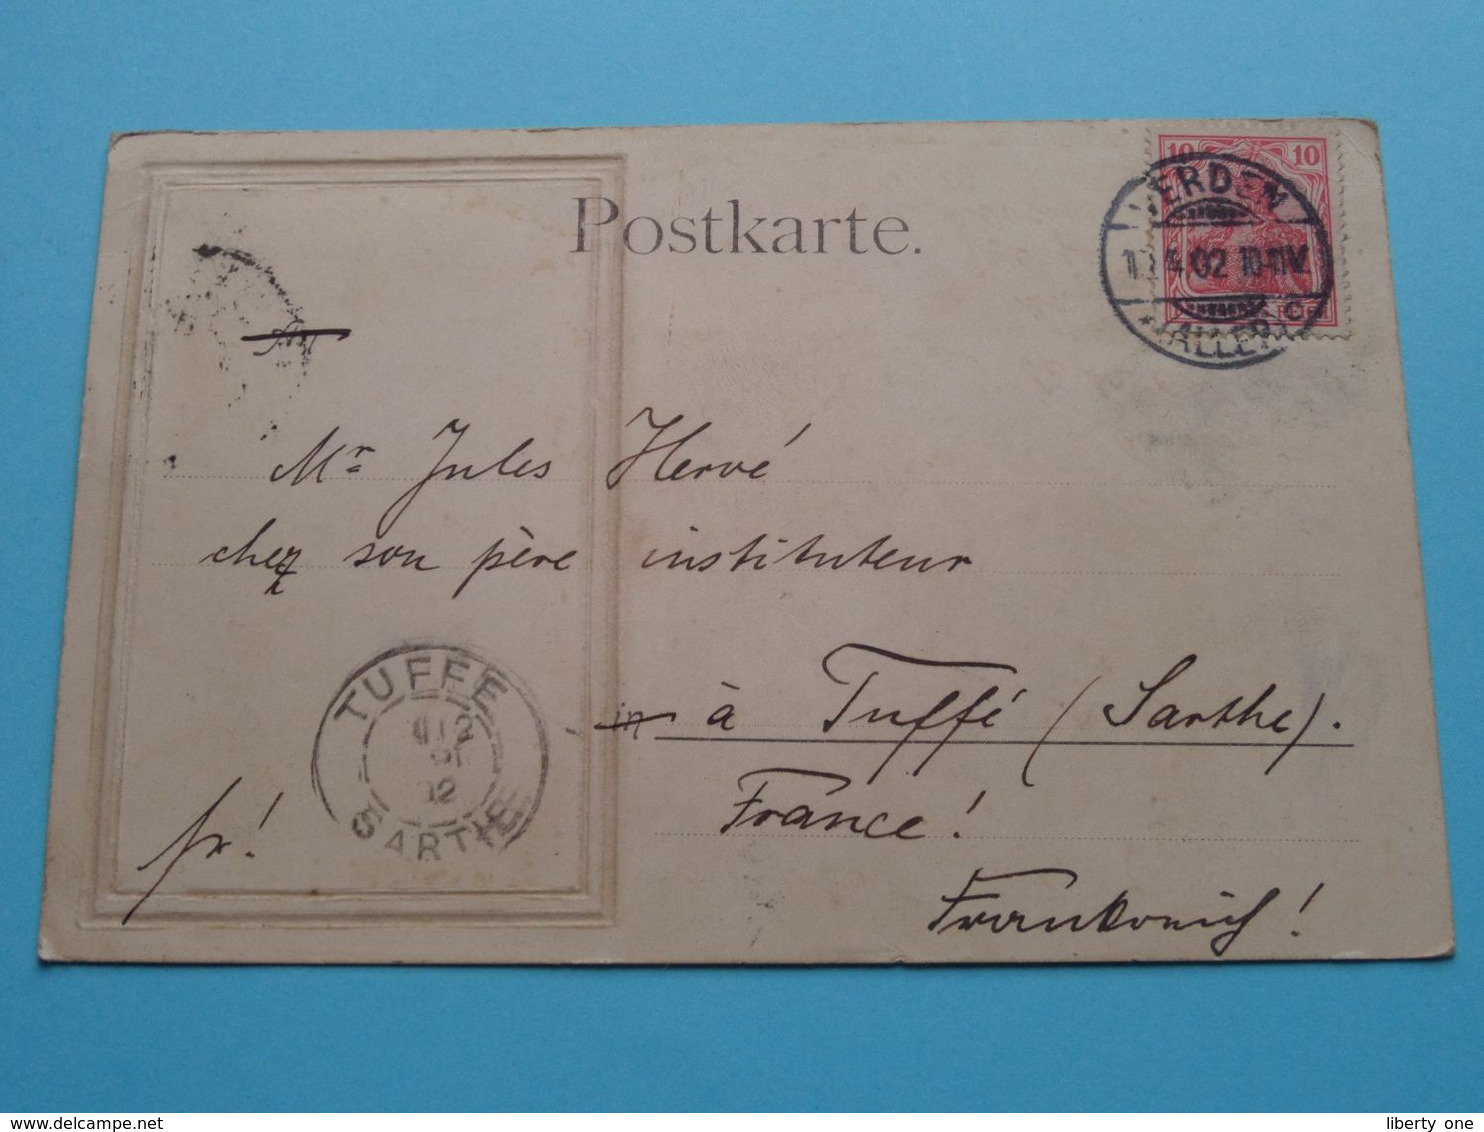 Postkarte.
10 10
VERDEN
4.02 10-11V.
(ALLER) C
An
Mr Jules Hervé
chez son père instituteur
TUFFE
02
SARTHE
in à Tuffé (Sarthe).
France!
fr!
Frankreich!
delcampe.net
liberty one